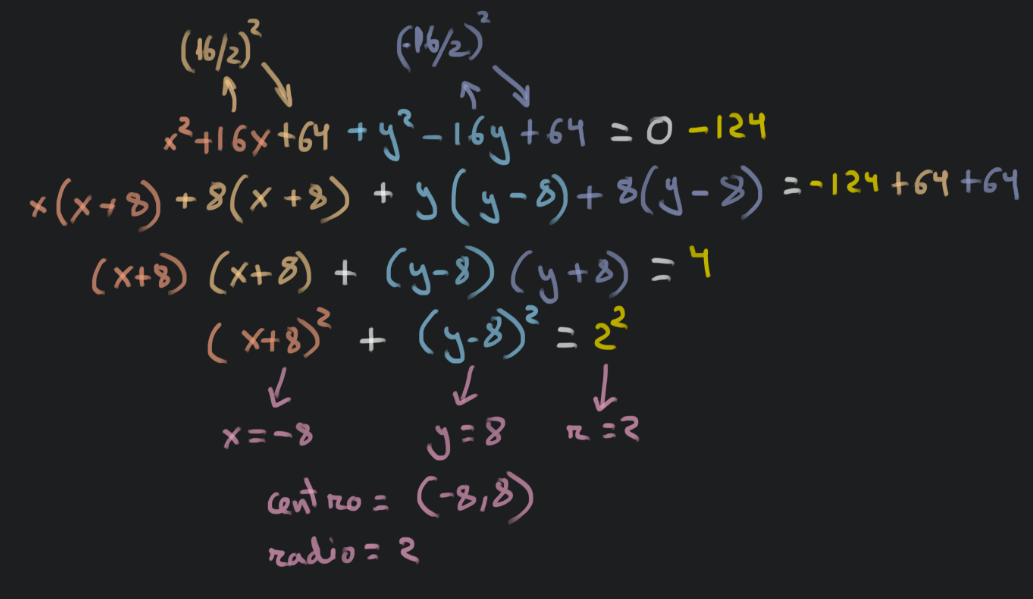 (16/2)² (-16/2)²
x²+16x+64 + y²-16y+64 = 0 -124
x(x+8) + 8(x+8) + y(y-8) + 8(y-8) = -124+64+64
(x+8) (x+8) + (y-8) (y+8) = 4
(x+8)² + (y-8)² = 2²
x=-8 y=8 r=2
centro = (-8,8)
radio = 2